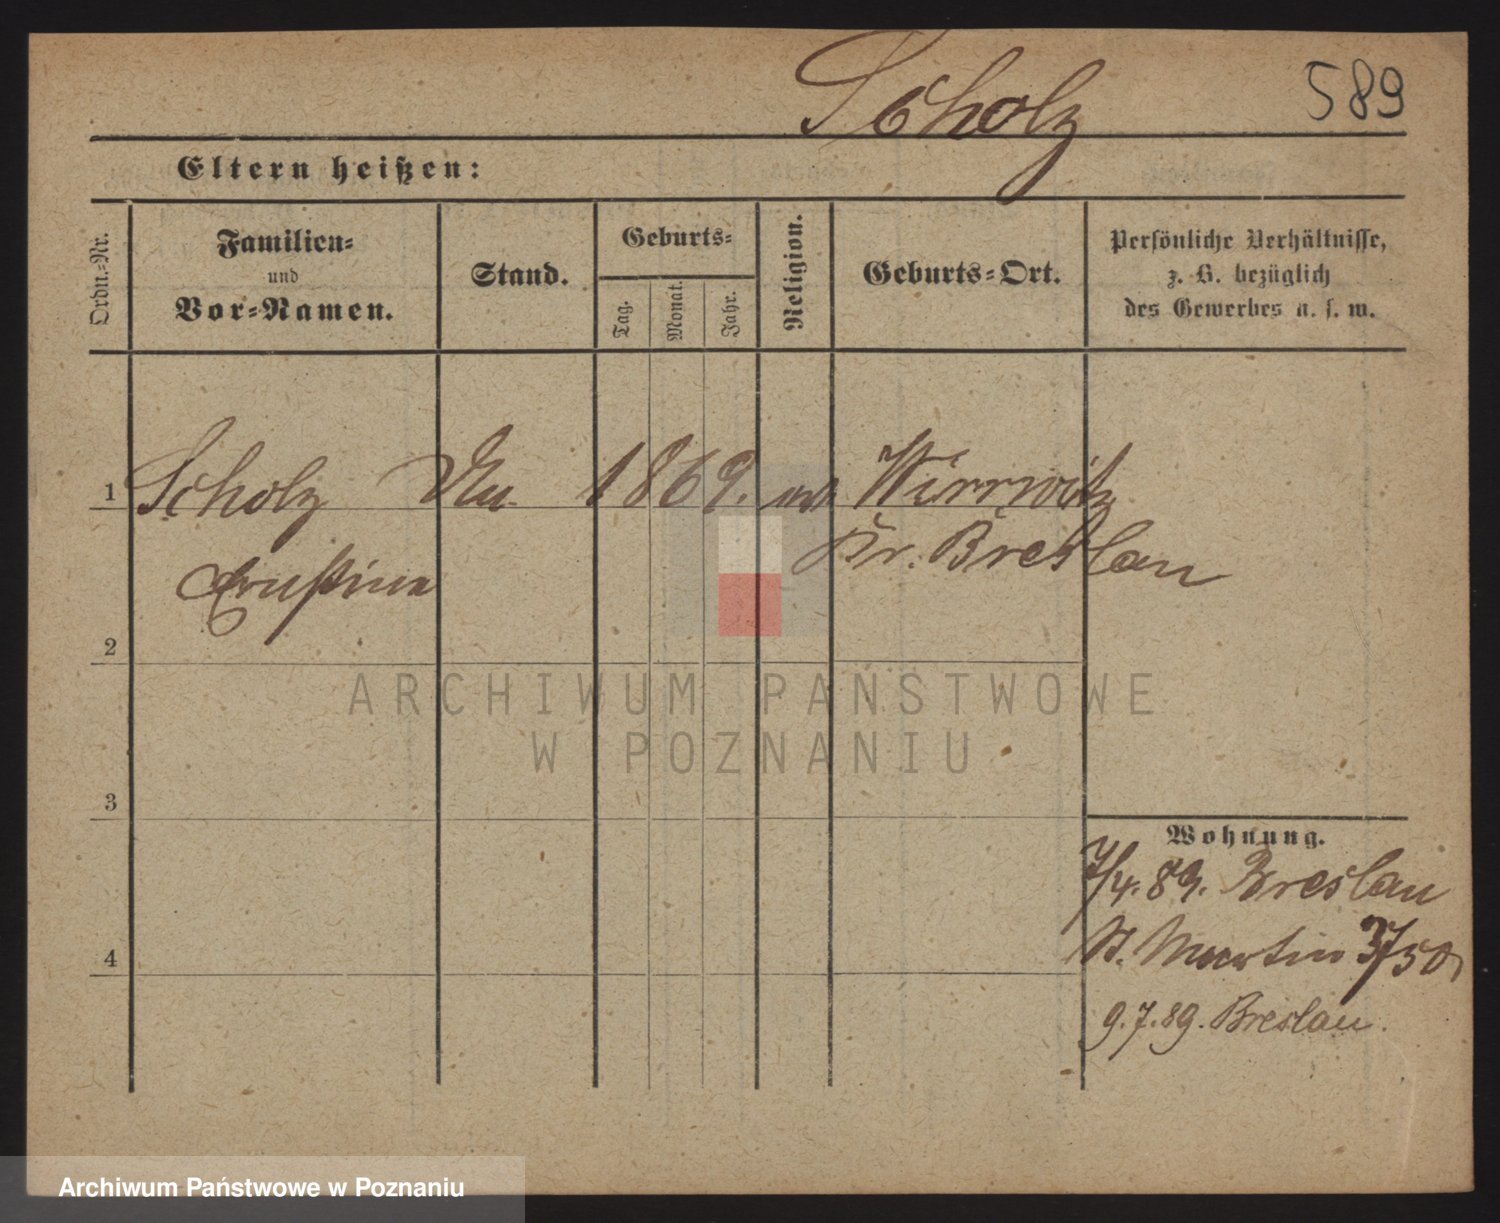 Scholz 589
Eltern heißen:
Ordn.-Nr.
Familien=
und
Vor=Namen.
Stand.
Geburts=
Tag.
Monat.
Jahr.
Religion.
Geburts=Ort.
Persönliche Verhältnisse,
z. B. bezüglich
des Gewerbes u. s. w.
1 Scholz 1869. Wirrwitz
Ernstine Kr. Breslau
2
3
4
Wohnung.
7/4. 89. Breslau
St. Martin 37/50
9.7.89. Breslau.
ARCHIWUM PAŃSTWOWE
W POZNANIU
Archiwum Państwowe w Poznaniu